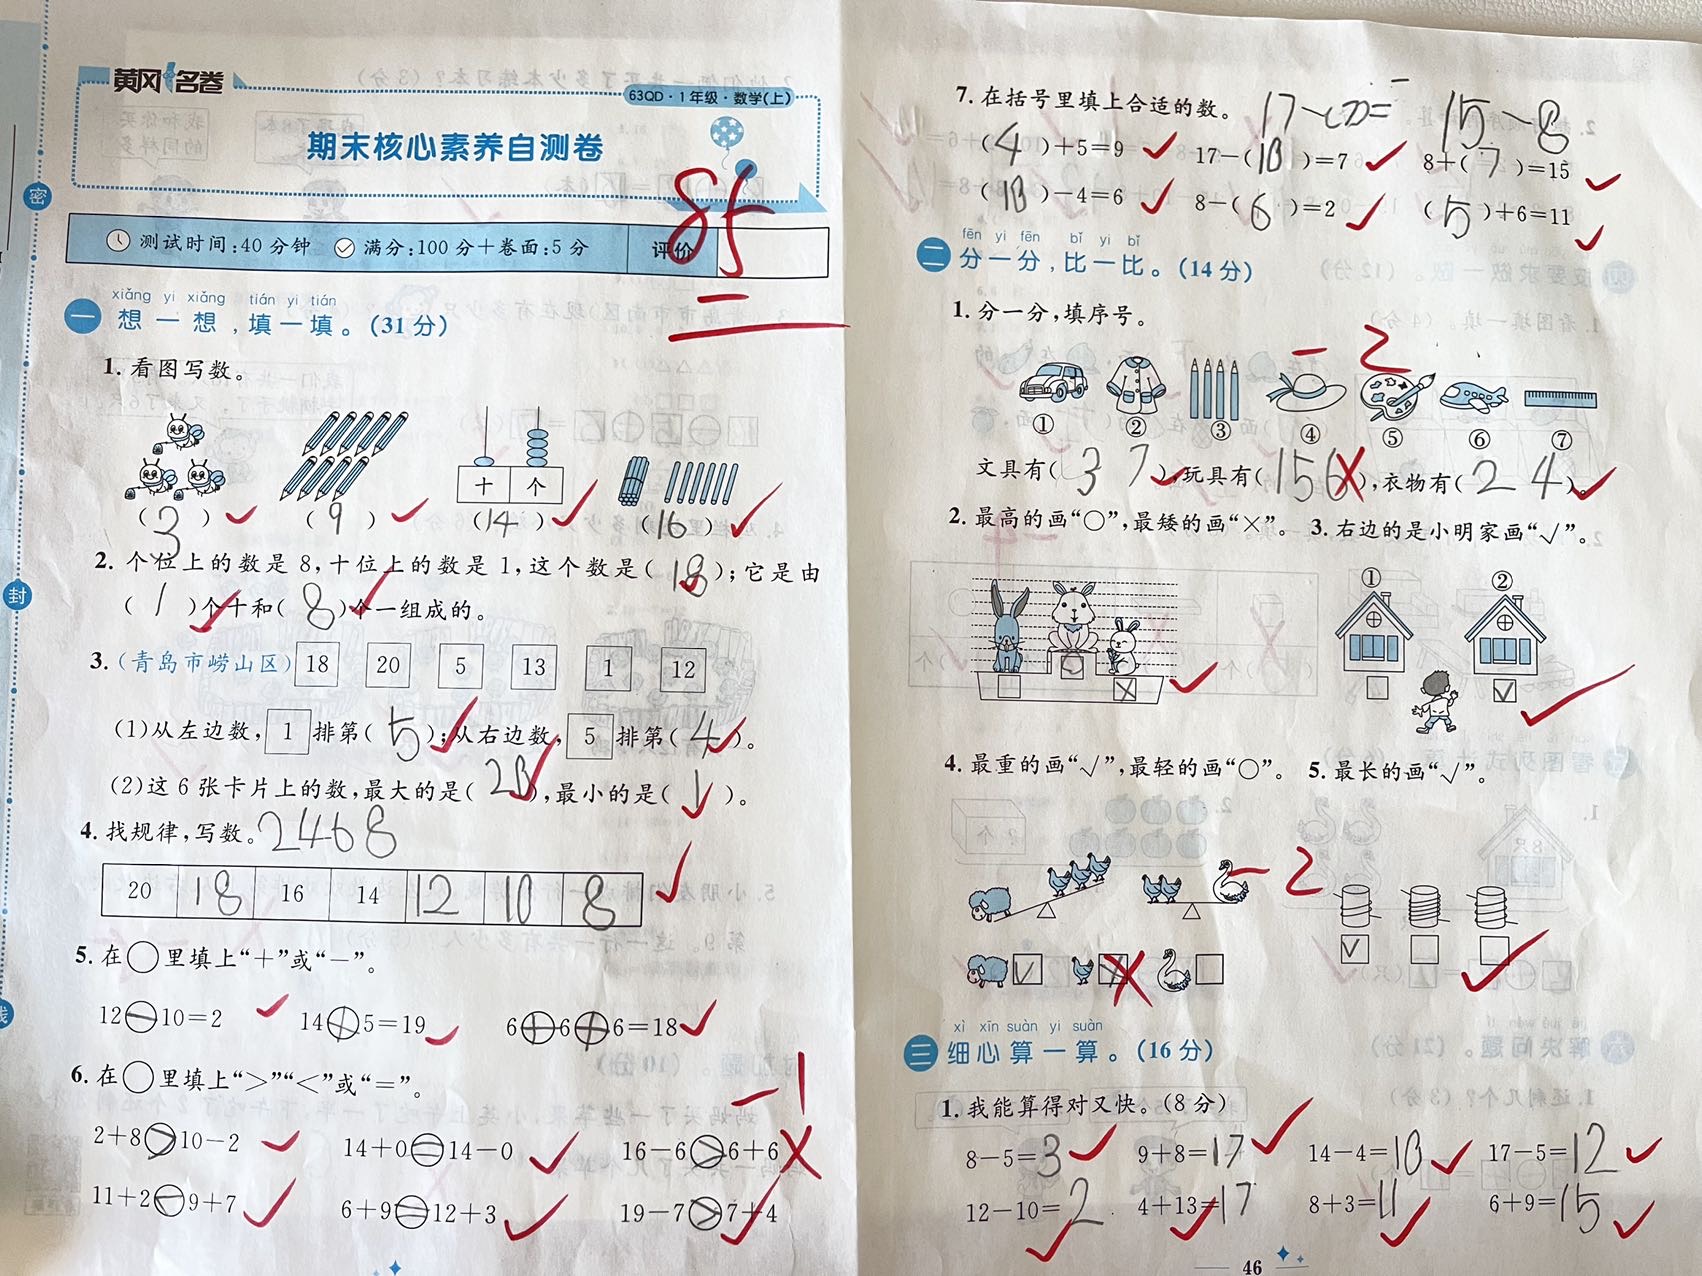 黄冈名卷
63QD·1年级·数学(上)
期末核心素养自测卷
85
测试时间:40分钟 满分:100分+卷面:5分 评价
xiǎng yi xiǎng tián yi tián
一 想一想,填一填。(31分)
1.看图写数。
十 个
(3) (9) (14) (16)
3
2.个位上的数是8,十位上的数是1,这个数是(18);它是由
(1)个十和(8)个一组成的。
3.(青岛市崂山区) 18 20 5 13 1 12
(1)从左边数,1排第(5);从右边数,5排第(4)。
(2)这6张卡片上的数,最大的是(20),最小的是(1)。
4.找规律,写数。2468
20 18 16 14 12 10 8
5.在○里填上“+”或“-”。
12-10=2 14+5=19 6+6+6=18
6.在○里填上“>”“<”或“=”。
-1
2+8>10-2 14+0=14-0 16-6>6+6
11+2<9+7 6+9=12+3 19-7>7+4
密
封
线
7.在括号里填上合适的数。
15-8
(4)+5=9 17-(10)=7 8+(7)=15
(10)-4=6 8-(6)=2 (5)+6=11
fēn yi fēn bǐ yi bǐ
二 分一分,比一比。(14分)
1.分一分,填序号。
-2
① ② ③ ④ ⑤ ⑥ ⑦
文具有(3 7),玩具有(156),衣物有(2 4)。
2.最高的画“○”,最矮的画“×”。 3.右边的是小明家画“√”。
① ②
4.最重的画“√”,最轻的画“○”。 5.最长的画“√”。
-2
xì xīn suàn yi suàn
三 细心算一算。(16分)
1.我能算得对又快。(8分)
8-5=3 9+8=17 14-4=10 17-5=12
12-10=2 4+13=17 8+3=11 6+9=15
46